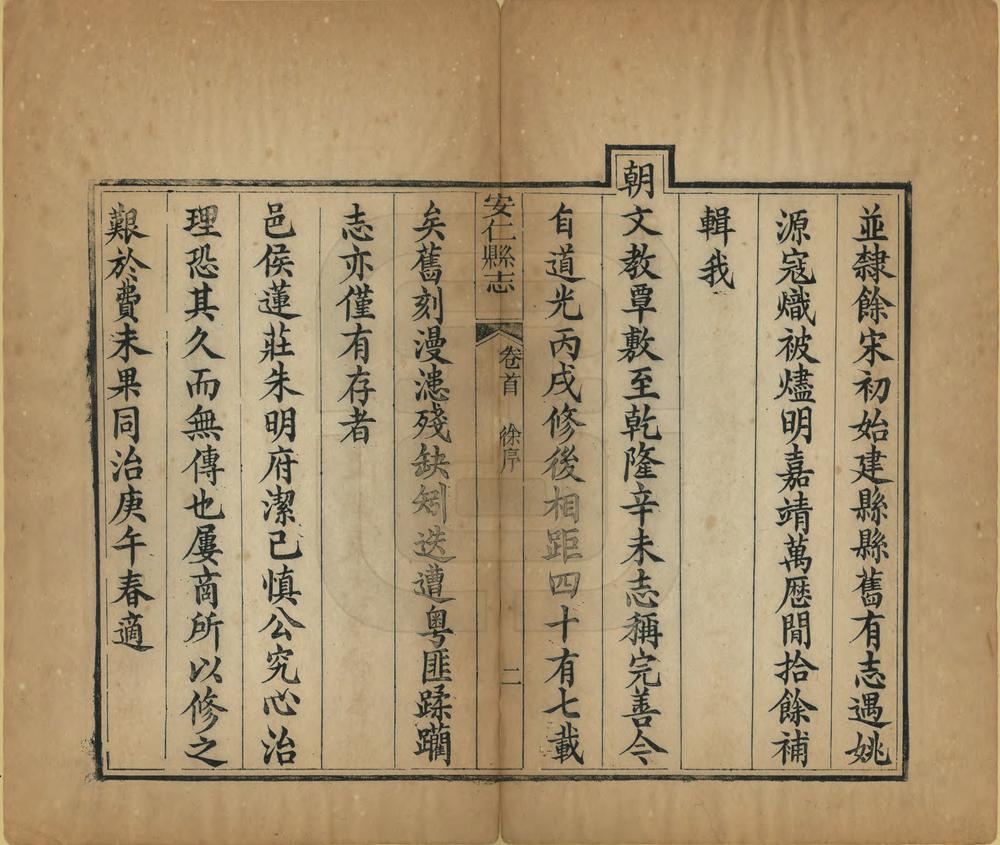 並隸餘宋初始建縣縣舊有志遇姚
源寇熾被燼明嘉靖萬歷間拾餘補
輯我
朝文教覃敷至乾隆辛未志稱完善今
自道光丙戌修後相距四十有七載
安仁縣志
卷首 徐序
二
矣舊刻漫漶殘缺矧迭遭粵匪蹂躪
志亦僅有存者
邑侯蓮莊朱明府潔己慎公究心治
理恐其久而無傳也屢商所以修之
艱於費未果同治庚午春適